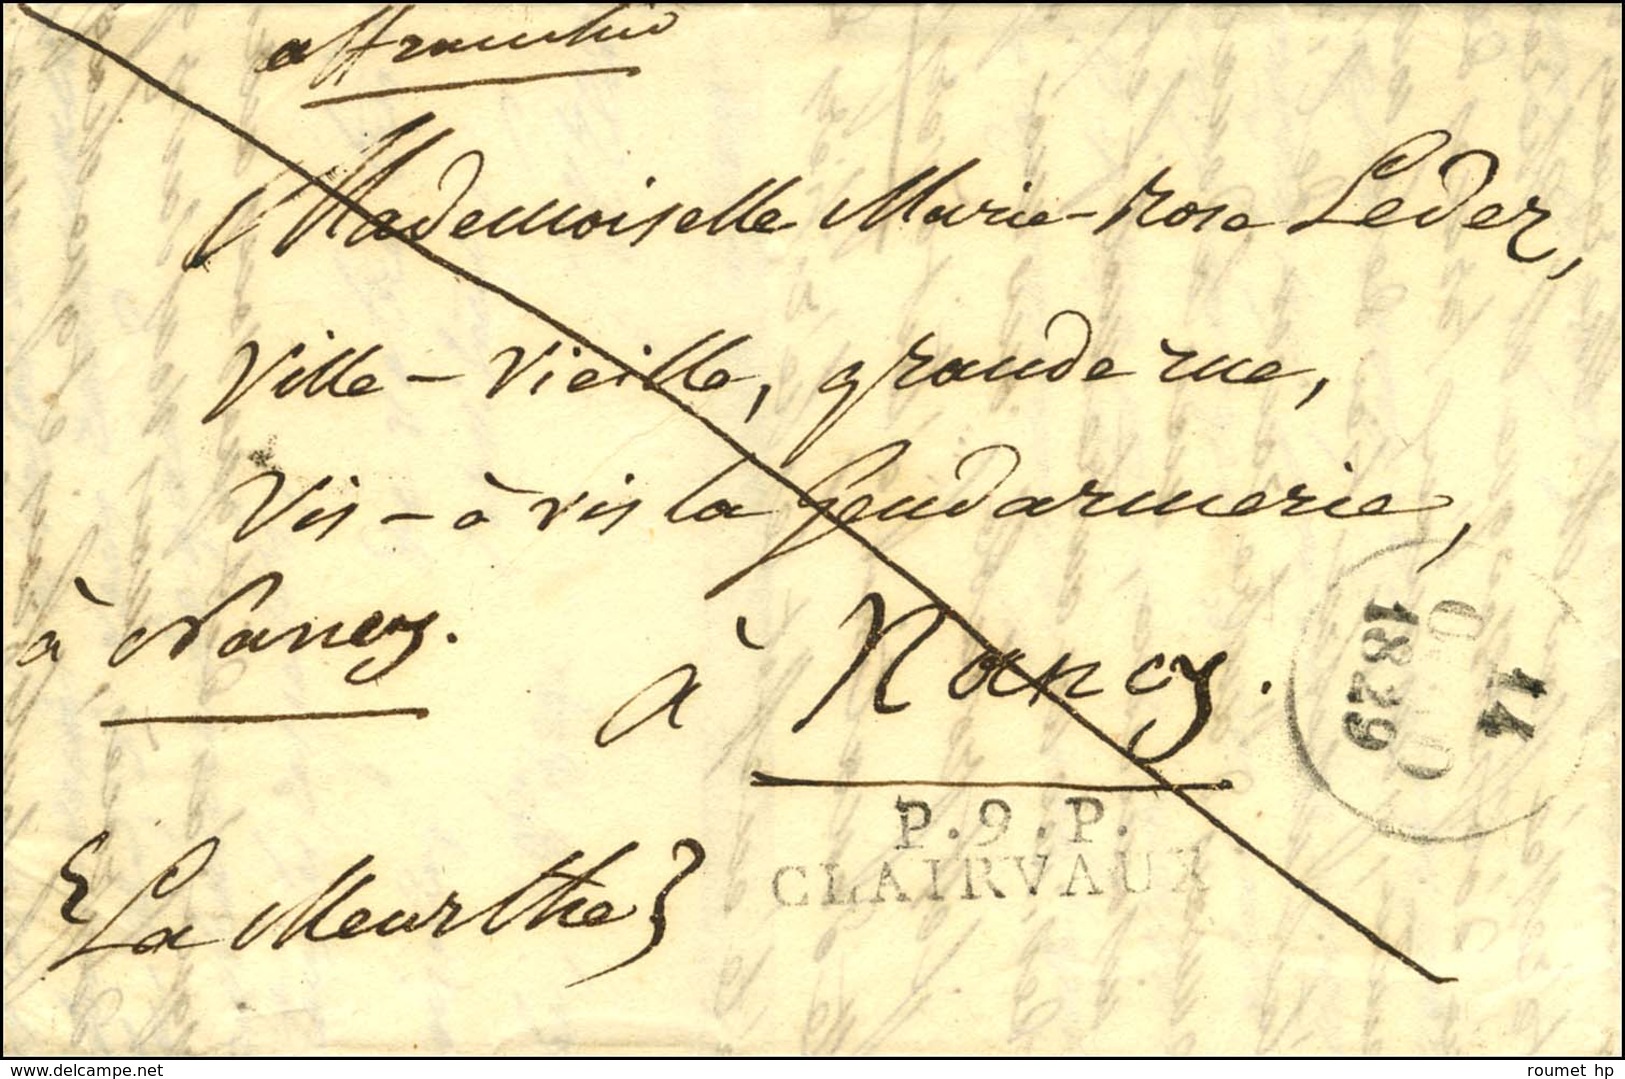 affranchie
Mademoiselle Marie-Rose Leder,
Ville-Vieille, grande rue,
Vis-à vis la Gendarmerie,
à Nancy.
à Nancy.
14
1829
P.9.P.
CLAIRVAUX
(La Meurthe)
www.delcampe.net
roumet hp